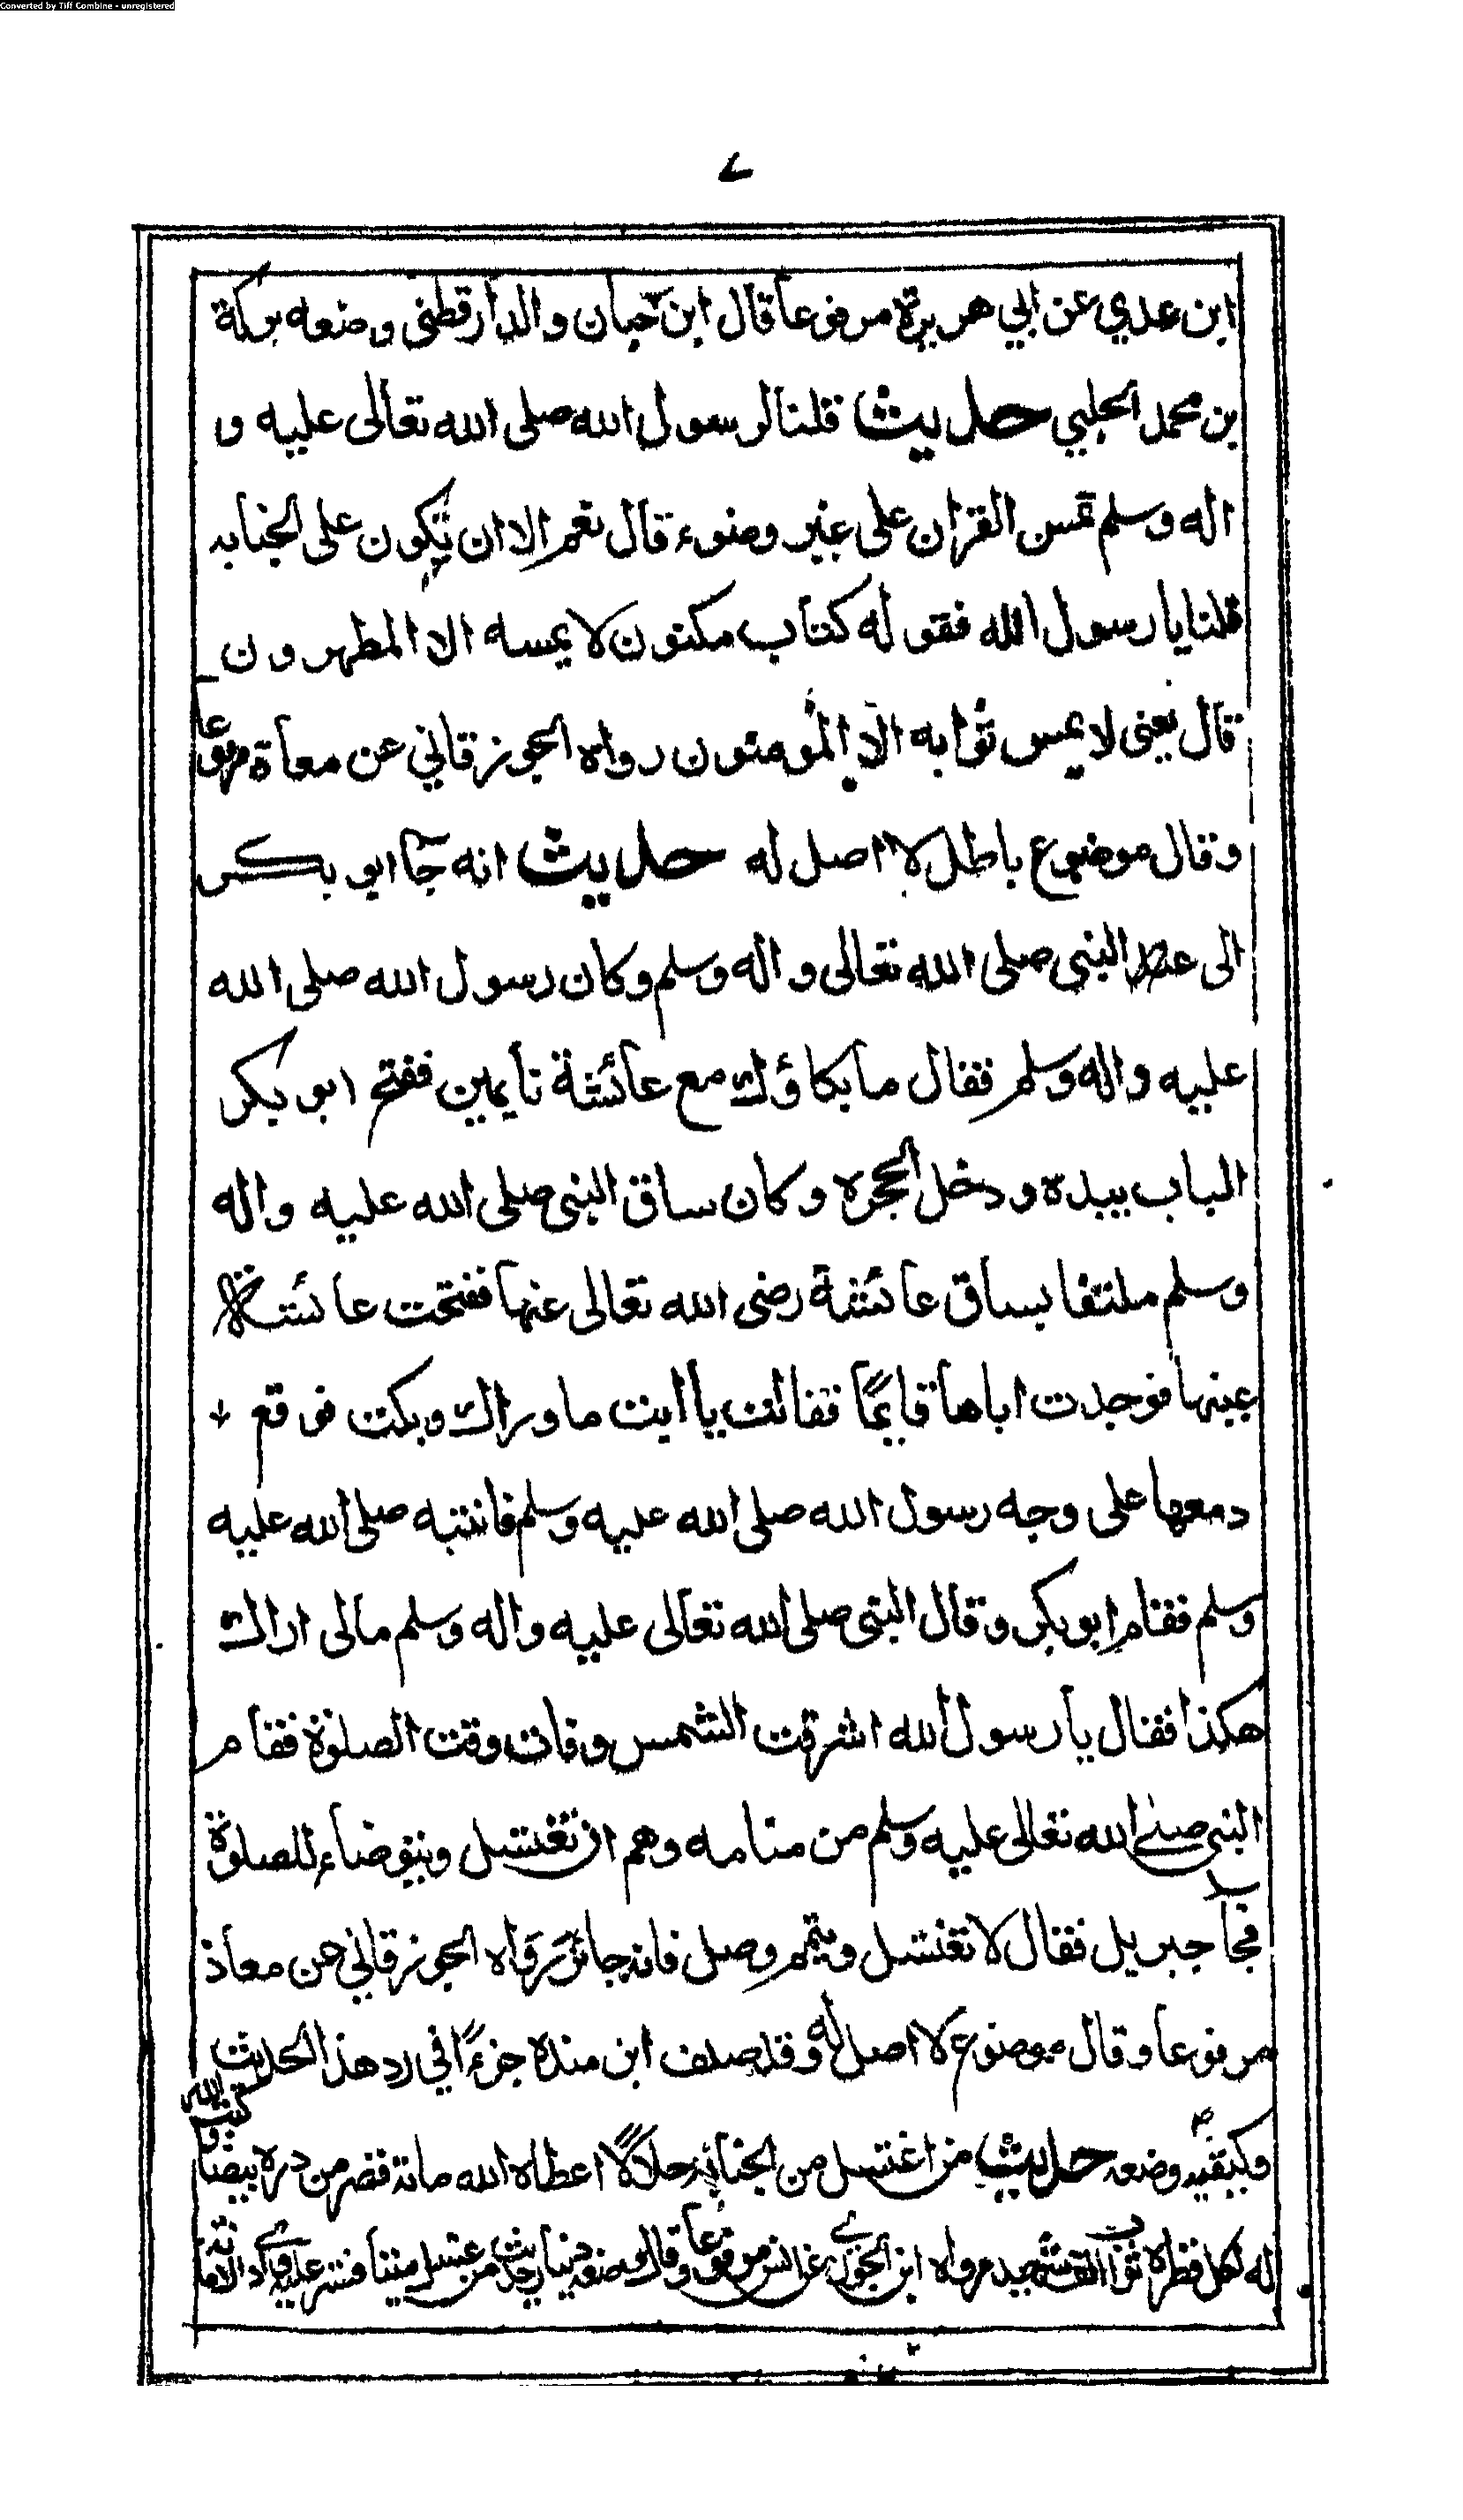 Converted by Tiff Combine - unregistered
ابن عدي عن ابي هريرة مرفوعا قال ابن حبان والدارقطنى وضعه بركة
بن محمد الحلبي حديث قلنا لرسول الله صلى الله تعالى عليه و
اله وسلم تمس القران على غير وضوء قال نعم الا ان تكون على الجنابه
قلنا يا رسول الله فقوله كتاب مكنون لا يمسه الا المطهرون
قال يعنى لا يمس ثوابه الا المومنون رواه الجوزقاني عن معاذ مرفوعا
وقال موضوع باطل لا اصل له حديث انه جآ ابو بكر
الى النبى صلى الله تعالى واله وسلم وكان رسول الله صلى الله
عليه واله وسلم فقال ما بكاؤك مع عائشة نايمين ففتح ابو بكر
الباب بيده ودخل الحجره وكان ساق النبى صلى الله عليه واله
وسلم ملتفا بساق عائشة رضى الله تعالى عنها ففتحت عائشة
عينها فوجدت اباها قايما فقالت يا ابت ما وراك وبكت فوقع
دمعها على وجه رسول الله صلى الله عليه وسلم فانتبه صلى الله عليه
وسلم فقام ابو بكر وقال النبى صلى الله تعالى عليه واله وسلم مالى اراك
هكذا فقال يا رسول الله اشرقت الشمس وفات وقت الصلوة فقام
النبى صلى الله تعالى عليه وسلم من منامه وهم ان تغتسل ويتوضاء للصلوة
فجآ جبريل فقال لا تغتسل وتيمم وصل فانه جائز رواه الجوزقاني عن معاذ
مرفوعا وقال موضوع لا اصل له وقد صنف ابن منده جزءًا في رد هذا الحديث
وضعه حديث من اغتسل من الجنابه حلالًا اعطاه الله مائة قصر من دره بيضا وكتب الله
له لكل قطرة ثواب شهيد رواه ابن الجوزي عن انس مرفوعا وقال وضعه دينار حديث من غسل ميتا فستر عليه وادى الامانة